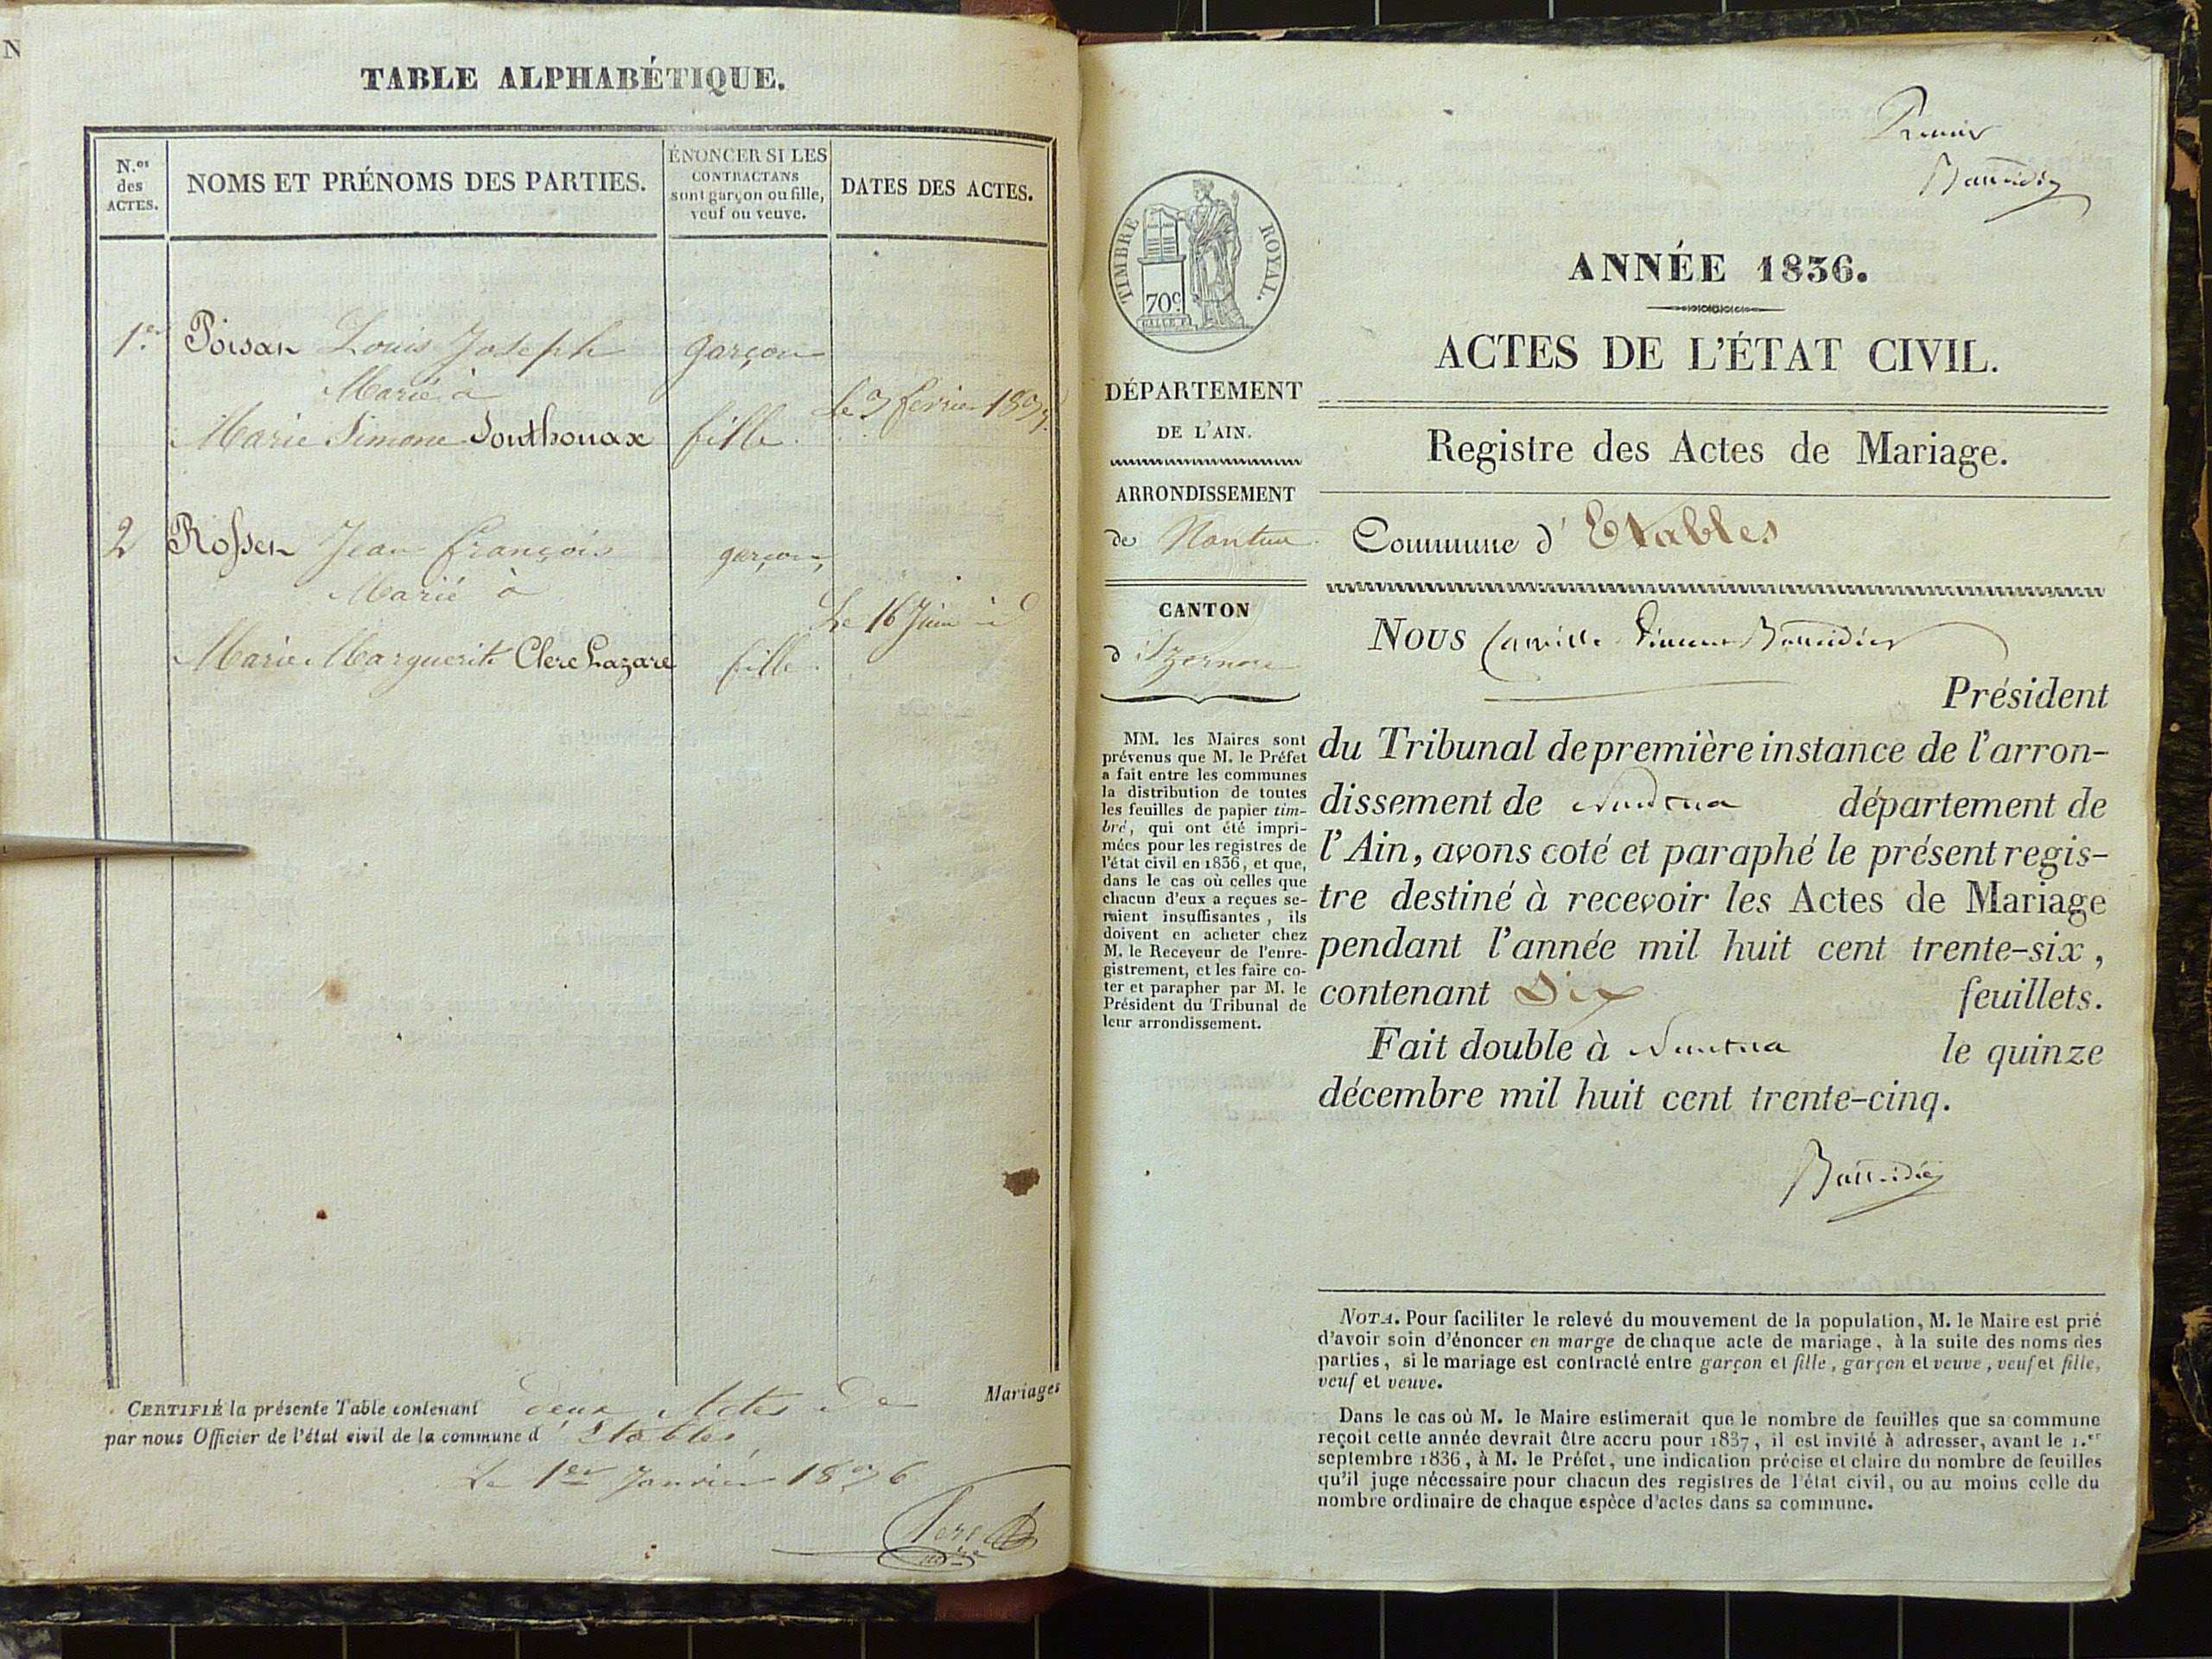 TABLE ALPHABÉTIQUE.
N.os des ACTES.
NOMS ET PRÉNOMS DES PARTIES.
ÉNONCER SI LES CONTRACTANS sont garçon ou fille, veuf ou veuve.
DATES DES ACTES.
1.er Poisan Louis Joseph garçon
Marié à
Le 3 février
Marie Simone Southonax fille
2 Rossen Jean françois garçon
Marié à
Le 16 Juin id
Marie Marguerite Clerc Lazare fille
CERTIFIÉ la présente Table contenant deux Actes de Mariages
par nous Officier de l'état civil de la commune d'Etables
Le 1er Janvier 1836
Premier
TIMBRE ROYAL.
70c
DÉPARTEMENT
DE L'AIN.
ARRONDISSEMENT
de Nantua
CANTON
d'Izernore
MM. les Maires sont
prévenus que M. le Préfet
a fait entre les communes
la distribution de toutes
les feuilles de papier tim-
bré, qui ont été impri-
mées pour les registres de
l'état civil en 1836, et que,
dans le cas où celles que
chacun d'eux a reçues se-
raient insuffisantes, ils
doivent en acheter chez
M. le Receveur de l'enre-
gistrement, et les faire co-
ter et parapher par M. le
Président du Tribunal de
leur arrondissement.
ANNÉE 1836.
ACTES DE L'ÉTAT CIVIL.
Registre des Actes de Mariage.
Commune d'Etables
Nous Camille
Président
du Tribunal de première instance de l'arron-
dissement de Nantua département de
l'Ain, avons coté et paraphé le présent regis-
tre destiné à recevoir les Actes de Mariage
pendant l'année mil huit cent trente-six,
contenant Dix feuillets.
Fait double à Nantua le quinze
décembre mil huit cent trente-cinq.
NOTA. Pour faciliter le relevé du mouvement de la population, M. le Maire est prié
d'avoir soin d'énoncer en marge de chaque acte de mariage, à la suite des noms des
parties, si le mariage est contracté entre garçon et fille, garçon et veuve, veuf et fille,
veuf et veuve.
Dans le cas où M. le Maire estimerait que le nombre de feuilles que sa commune
reçoit cette année devrait être accru pour 1837, il est invité à adresser, avant le 1.er
septembre 1836, à M. le Préfet, une indication précise et claire du nombre de feuilles
qu'il juge nécessaire pour chacun des registres de l'état civil, ou au moins celle du
nombre ordinaire de chaque espèce d'actes dans sa commune.